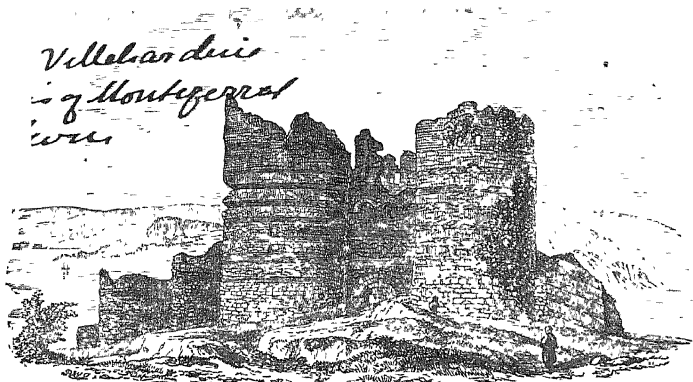 Villeharduin
s of Montferrat